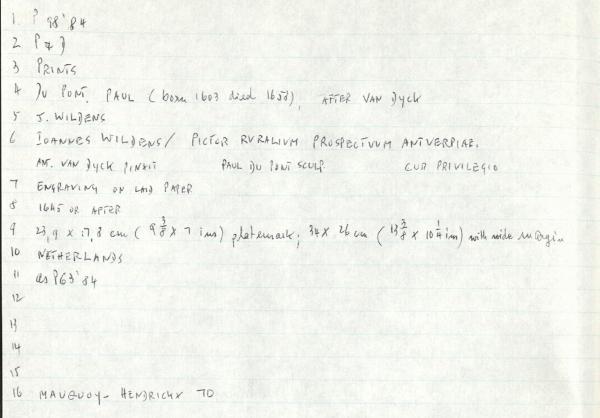 1 P 98'84
2 P 7 D
3 PRINTS
4 DU PONT, PAUL (born 1603 died 1658), AFTER VAN DYCK
5 J. WILDENS
6 IOANNES WILDENS / PICTOR RVRALIVM PROSPECTVUM ANTVERPIAE.
ANT. VAN DYCK PINXIT PAUL DU PONT SCULP. CUM PRIVILEGIO
7 ENGRAVING ON LAID PAPER
8 1645 OR AFTER
9 23,9 x 17,8 cm (9 3/8 x 7 ins) platemark; 34 x 26 cm (13 3/8 x 10 1/4 ins) with wide margin
10 NETHERLANDS
11 as P63'84
12
13
14
15
16 MAUQUOY-HENDRICKX 70